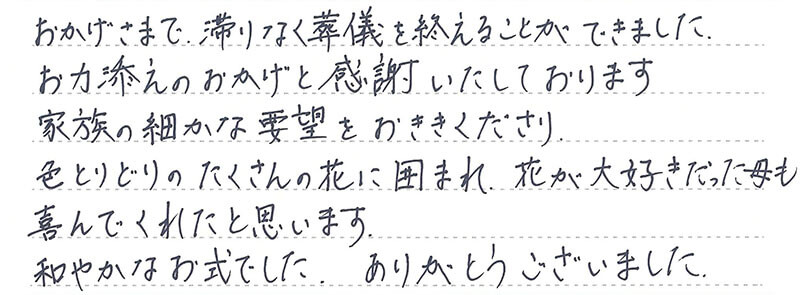 おかげさまで、滞りなく葬儀を終えることができました。
お力添えのおかげと感謝いたしております
家族の細かな要望をおききくださり、
色とりどりのたくさんの花に囲まれ、花が大好きだった母も
喜んでくれたと思います。
和やかなお式でした。 ありがとうございました。